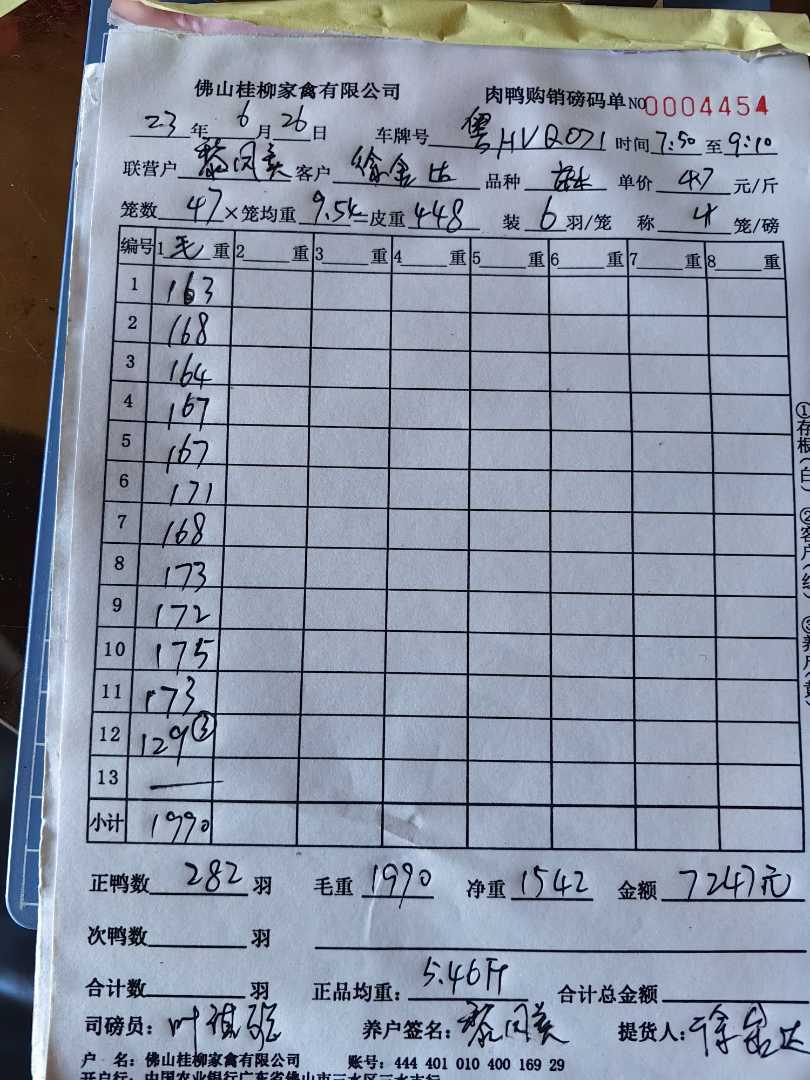 佛山桂柳家禽有限公司 肉鸭购销磅码单 NO 0004454
23 年 6 月 26 日 车牌号 粤HVQ071 时间 7:50 至 9:10
联营户 黎凤美 客户 徐金达 品种 单价 4.7 元/斤
笼数 47 ×笼均重 9.54 =皮重 448 装 6 羽/笼 称 4 笼/磅
编号 1 毛 重 2 重 3 重 4 重 5 重 6 重 7 重 8 重
1 163
2 168
3 164
4 167
5 167
6 171
7 168
8 173
9 172
10 175
11 173
12 129 ③
13 —
小计 1990
正鸭数 282 羽 毛重 1990 净重 1542 金额 7247元
次鸭数 羽
合计数 羽 正品均重: 5.46斤 合计总金额
司磅员: 叶 养户签名: 黎凤美 提货人: 徐金达
户 名: 佛山桂柳家禽有限公司 账号: 444 401 010 400 169 29
开户行: 中国农业银行广东省佛山市三水区三水支行
①存根(白) ②客户(红) ③养户(黄)